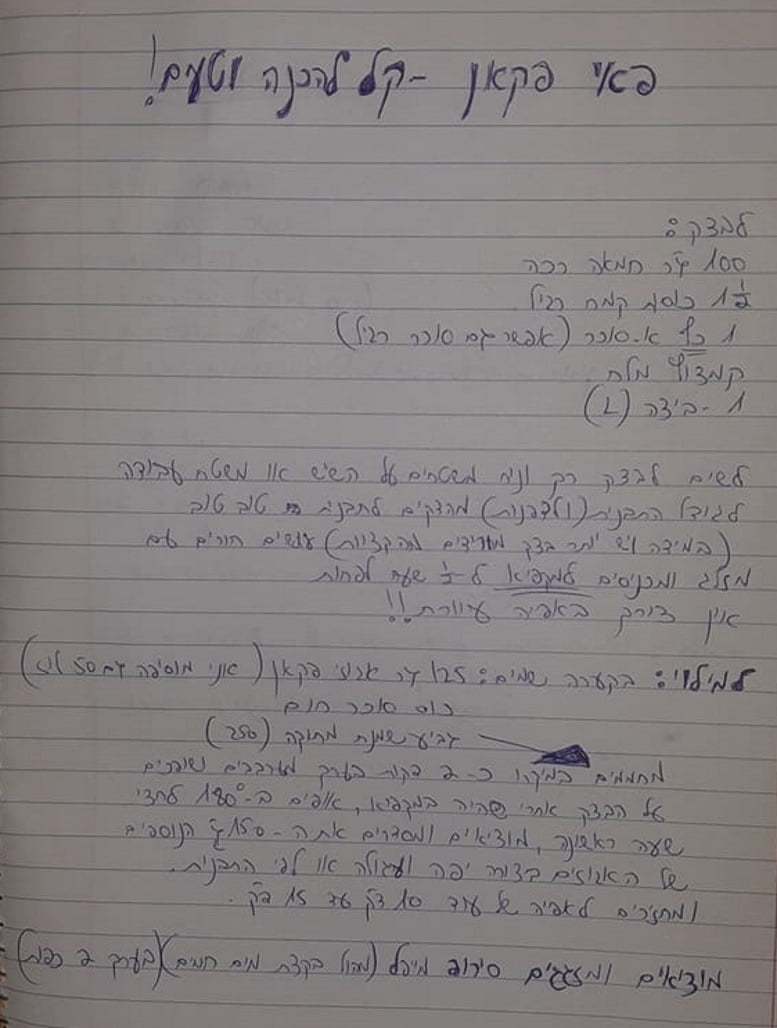 פאי פקאן - קל להכנה וטעים!
לבצק:
100 גר' חמאה רכה
1 1/2 כוסות קמח רגיל
1 כף א. סוכר (אפשר גם סוכר רגיל)
קמצוץ מלח
1 - ביצה (L)
לשים לבצק רך ונוח משטחים על השיש או משטח עבודה
לגודל התבנית (ולדפנות) מהדקים לתבנית טוב טוב
(במידה ויש יותר בצק מורידים מהקצוות) עושים חורים עם
מזלג ומכניסים למקפיא ל-1/2 שעה לפחות
אין צורך באפיה עיוורת!!
למילוי: בקערה שמים: 125 גר' אגוזי פקאן (אני מוסיפה גם 50 לוז)
כוס סוכר חום
גביע שמנת מתוקה (250)
מחממים במיקרו כ-2 דקות בערך מערבבים ושופכים
על הבצק אחרי שהיה במקפיא, אופים ב-180° לחצי
שעה ראשונה, מוציאים ומסדרים את ה-150 גר' הנוספים
של האגוזים בצורה יפה ועגולה או לפי התבנית.
ומחזירים לאפיה של עוד 10 דק' עד 15 דק'.
מוציאים ומזגגים סירופ מייפל (מהול בקצת מים חמים) (בערך 2 כפות)